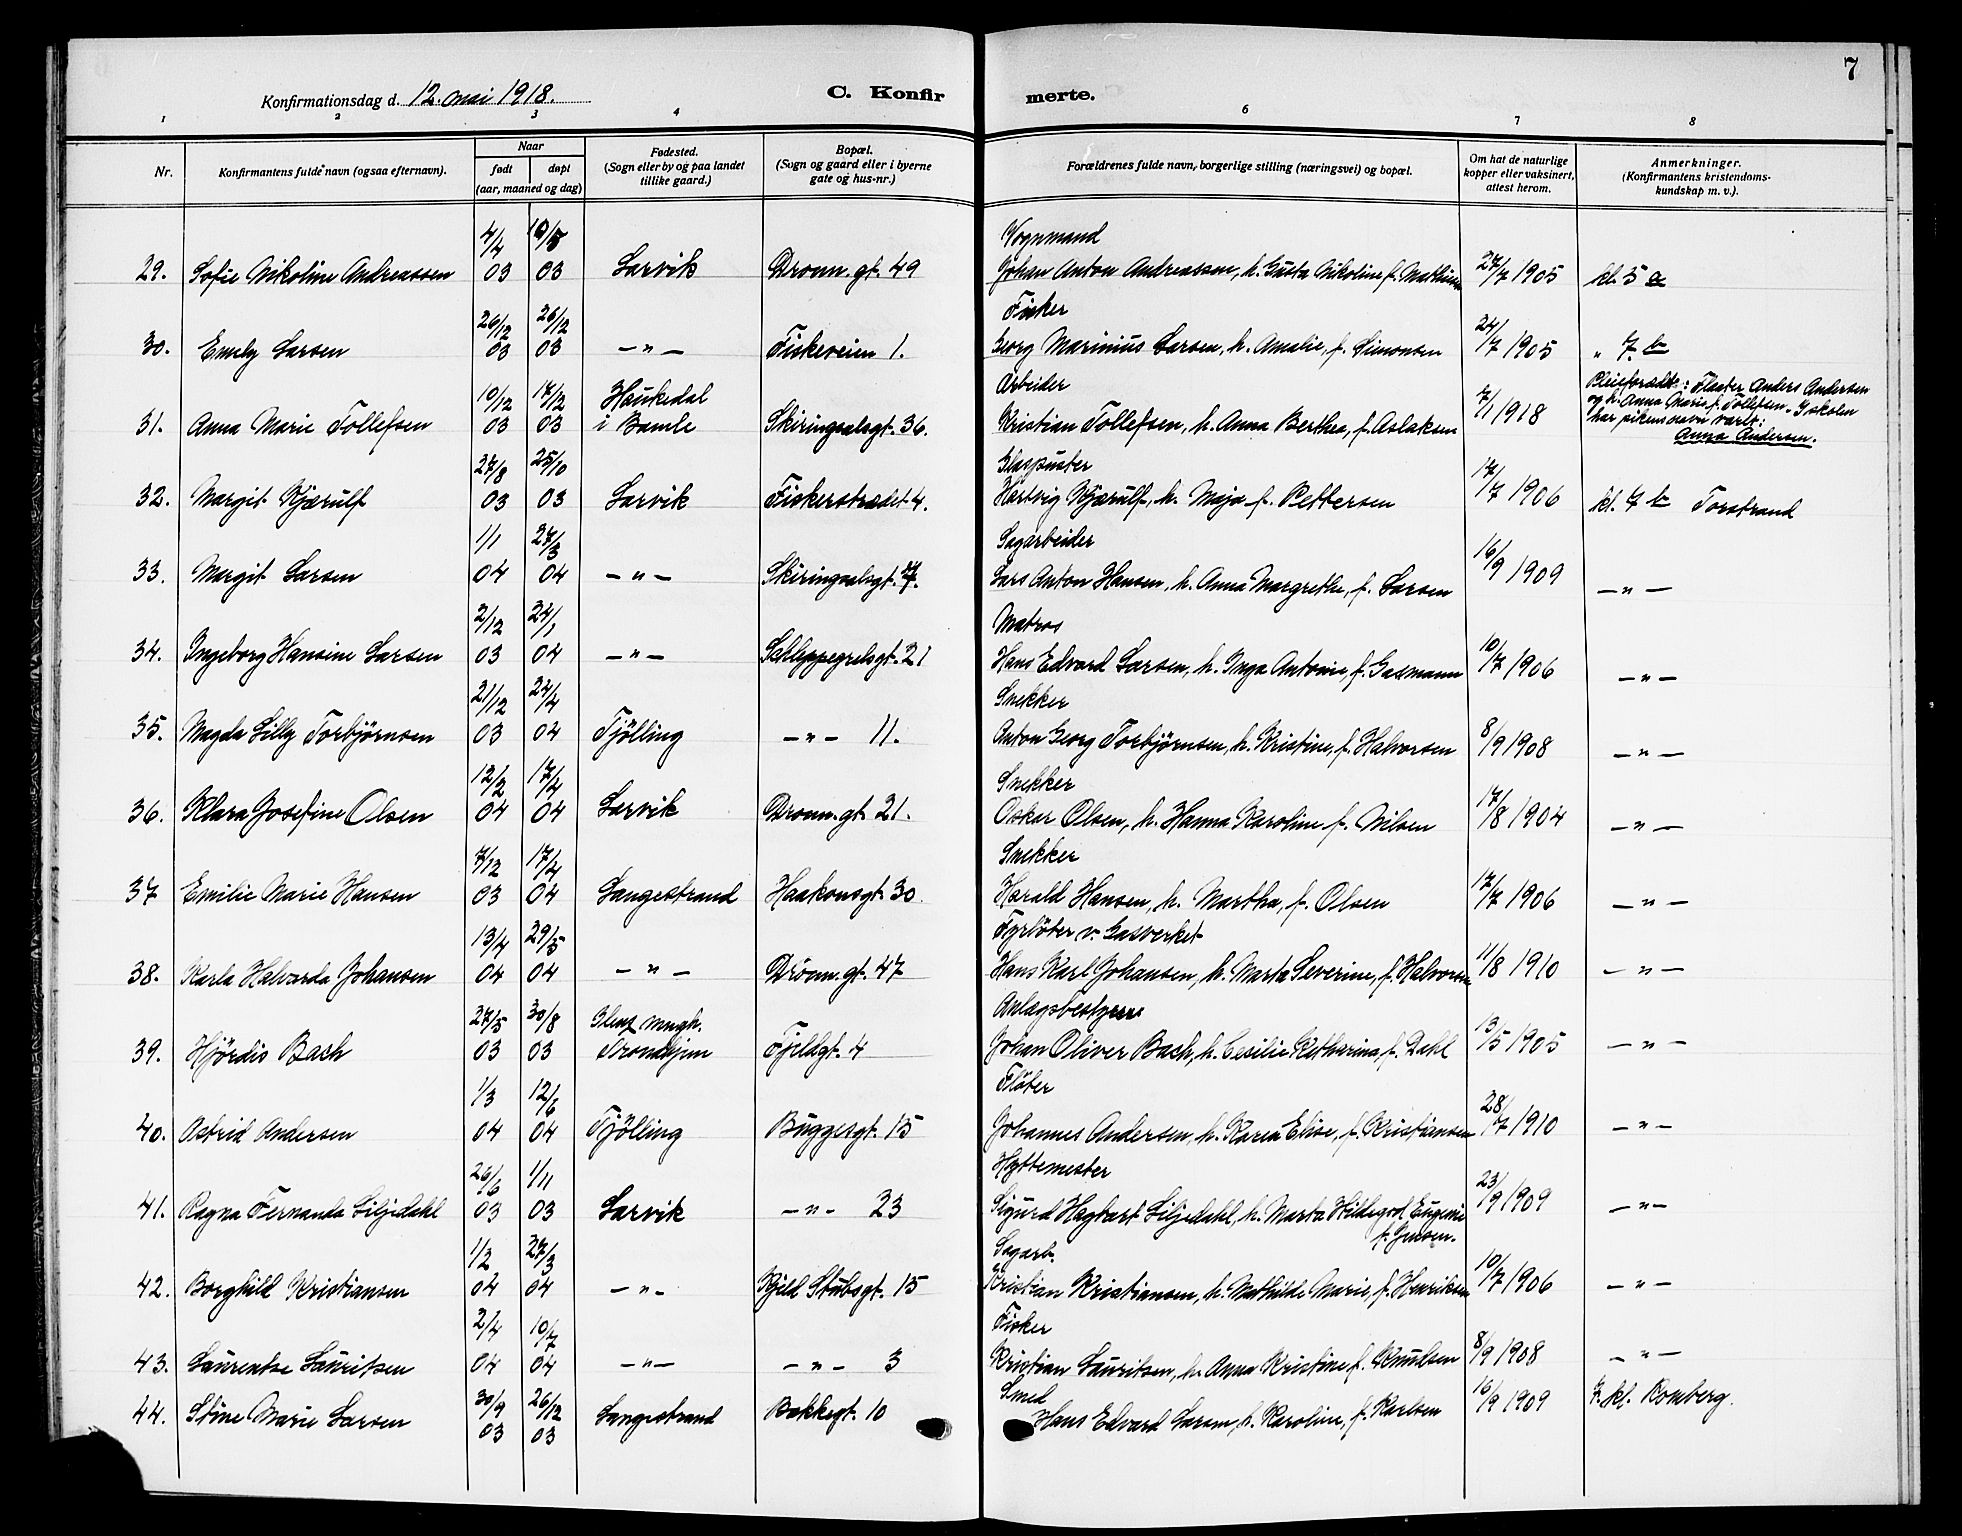 7
Konfirmationsdag d. 12. mai 1918. C. Konfirmerte.
1 2 3 4 5 6 7 8
Nr. Konfirmantens fulde navn (ogsaa efternavn). Naar født døpt (aar, maaned og dag) Fødested. (Sogn eller by og paa landet tillike gaard.) Bopæl. (Sogn og gaard eller i byerne gate og hus-nr.) Forældrenes fulde navn, borgerlige stilling (næringsvei) og bopæl. Om hat de naturlige kopper eller vaksinert, attest herom. Anmerkninger. (Konfirmantens kristendomskundskap m. v.).
29. Sofie Nikoline Andreassen 4/4 03 10/5 03 Larvik Dronn. gt. 49 Vognmand Johan Anton Andreassen, h. Gusta Nikoline f. Mathisen 27/7 1905 kl. 5 a
30. Emely Larsen 26/12 03 26/12 03 —"— Fiskeveien 1. Fisker Georg Marinius Larsen, h. Amalie, f. Simonsen 24/7 1905 " 7. b
31. Anna Marie Tollefsen 10/12 03 17/12 03 Haukedal i Bamle Skiringsalsgt. 36. Arbeider Kristian Tollefsen, h. Anna Berthea, f. Aslaksen 7/1 1918 Pleieforældr.: Fløter Anders Andersen og h. Anna Marie f. Tollefsen. I skolen har pikens navn vært: Anna Andersen.
32. Margit Kjærulf 27/8 03 25/10 03 Larvik Fiskerstrædet 4. Glaspuster Hartvig Kjærulf, h. Maja f. Pettersen 17/7 1906 kl. 7 b Torstrand
33. Margit Larsen 1/1 04 27/3 04 —"— Skiringsalsgt. Sagarbeider Lars Anton Hansen, h. Anna Margrethe, f. Larsen 16/9 1909 —"—
34. Ingeborg Hansine Larsen 2/12 03 24/1 04 —"— Schleppegrelsgt. 21 Matros Hans Edvard Larsen, h. Inga Antonie, f. Gasmann 10/7 1906 —"—
35. Magda Lilly Torbjørnsen 21/12 03 24/4 04 Tjölling —"— 11. Snekker Anton Georg Torbjørnsen, h. Kristine, f. Halvorsen 8/9 1908 —"—
36. Klara Josefine Olsen 12/2 04 17/4 04 Larvik Dronn. gt. 21. Snekker Oskar Olsen, h. Hanna Karoline f. Nilsen 17/8 1904 —"—
37 Emilie Marie Hansen 7/12 03 17/4 04 Langestrand Haakonsgt. 30. Snekker Harald Hansen, h. Martha, f. Olsen 17/7 1906 —"—
38. Karla Halvarda Johansen 13/4 04 29/5 04 —"— Dronn. gt. 47 Fyrböter v. Gasverket Hans Karl Johansen, h. Marta Severine, f. Halvorsen 11/8 1910 —"—
39. Hjördis Bach 27/5 03 30/8 03 Trondhjem Fjeldgt. 4 Anlægsbestyrer Johan Oliver Bach, h. Cesilie Katharina, f. Dahl 13/5 1905 —"—
40. Astrid Andersen 1/3 04 12/6 04 Tjölling Buggesgt. 15 Flöter Johannes Andersen, h. Karen Elise, f. Kristiansen 28/7 1910 —"—
41. Ragna Fernanda Liljedahl 26/6 03 1/11 03 Larvik —"— 23 Hyttemester Sigurd Hagbart Liljedahl, h. Marta Hildegod Eugenie f. Jensen. 23/9 1909 —"—
42. Borghild Kristiansen 1/2 04 27/3 04 —"— Kjeld Stubsgt. 15 Sagarb. Kristian Kristiansen, h. Mathilde Marie, f. Henriksen 10/7 1906 —"—
43. Laurentse Lauritsen 2/4 04 10/7 04 —"— —"— 3 Fisker Kristian Lauritsen, h. Anna Kristine f. Knutsen 8/9 1908 —"—
44. Stine Marie Larsen 30/9 03 26/12 03 Langestrand Bakkegt. 10 Smed Hans Edvard Larsen, h. Karoline, f. Karlsen 16/9 1909 7. kl. Romberg.